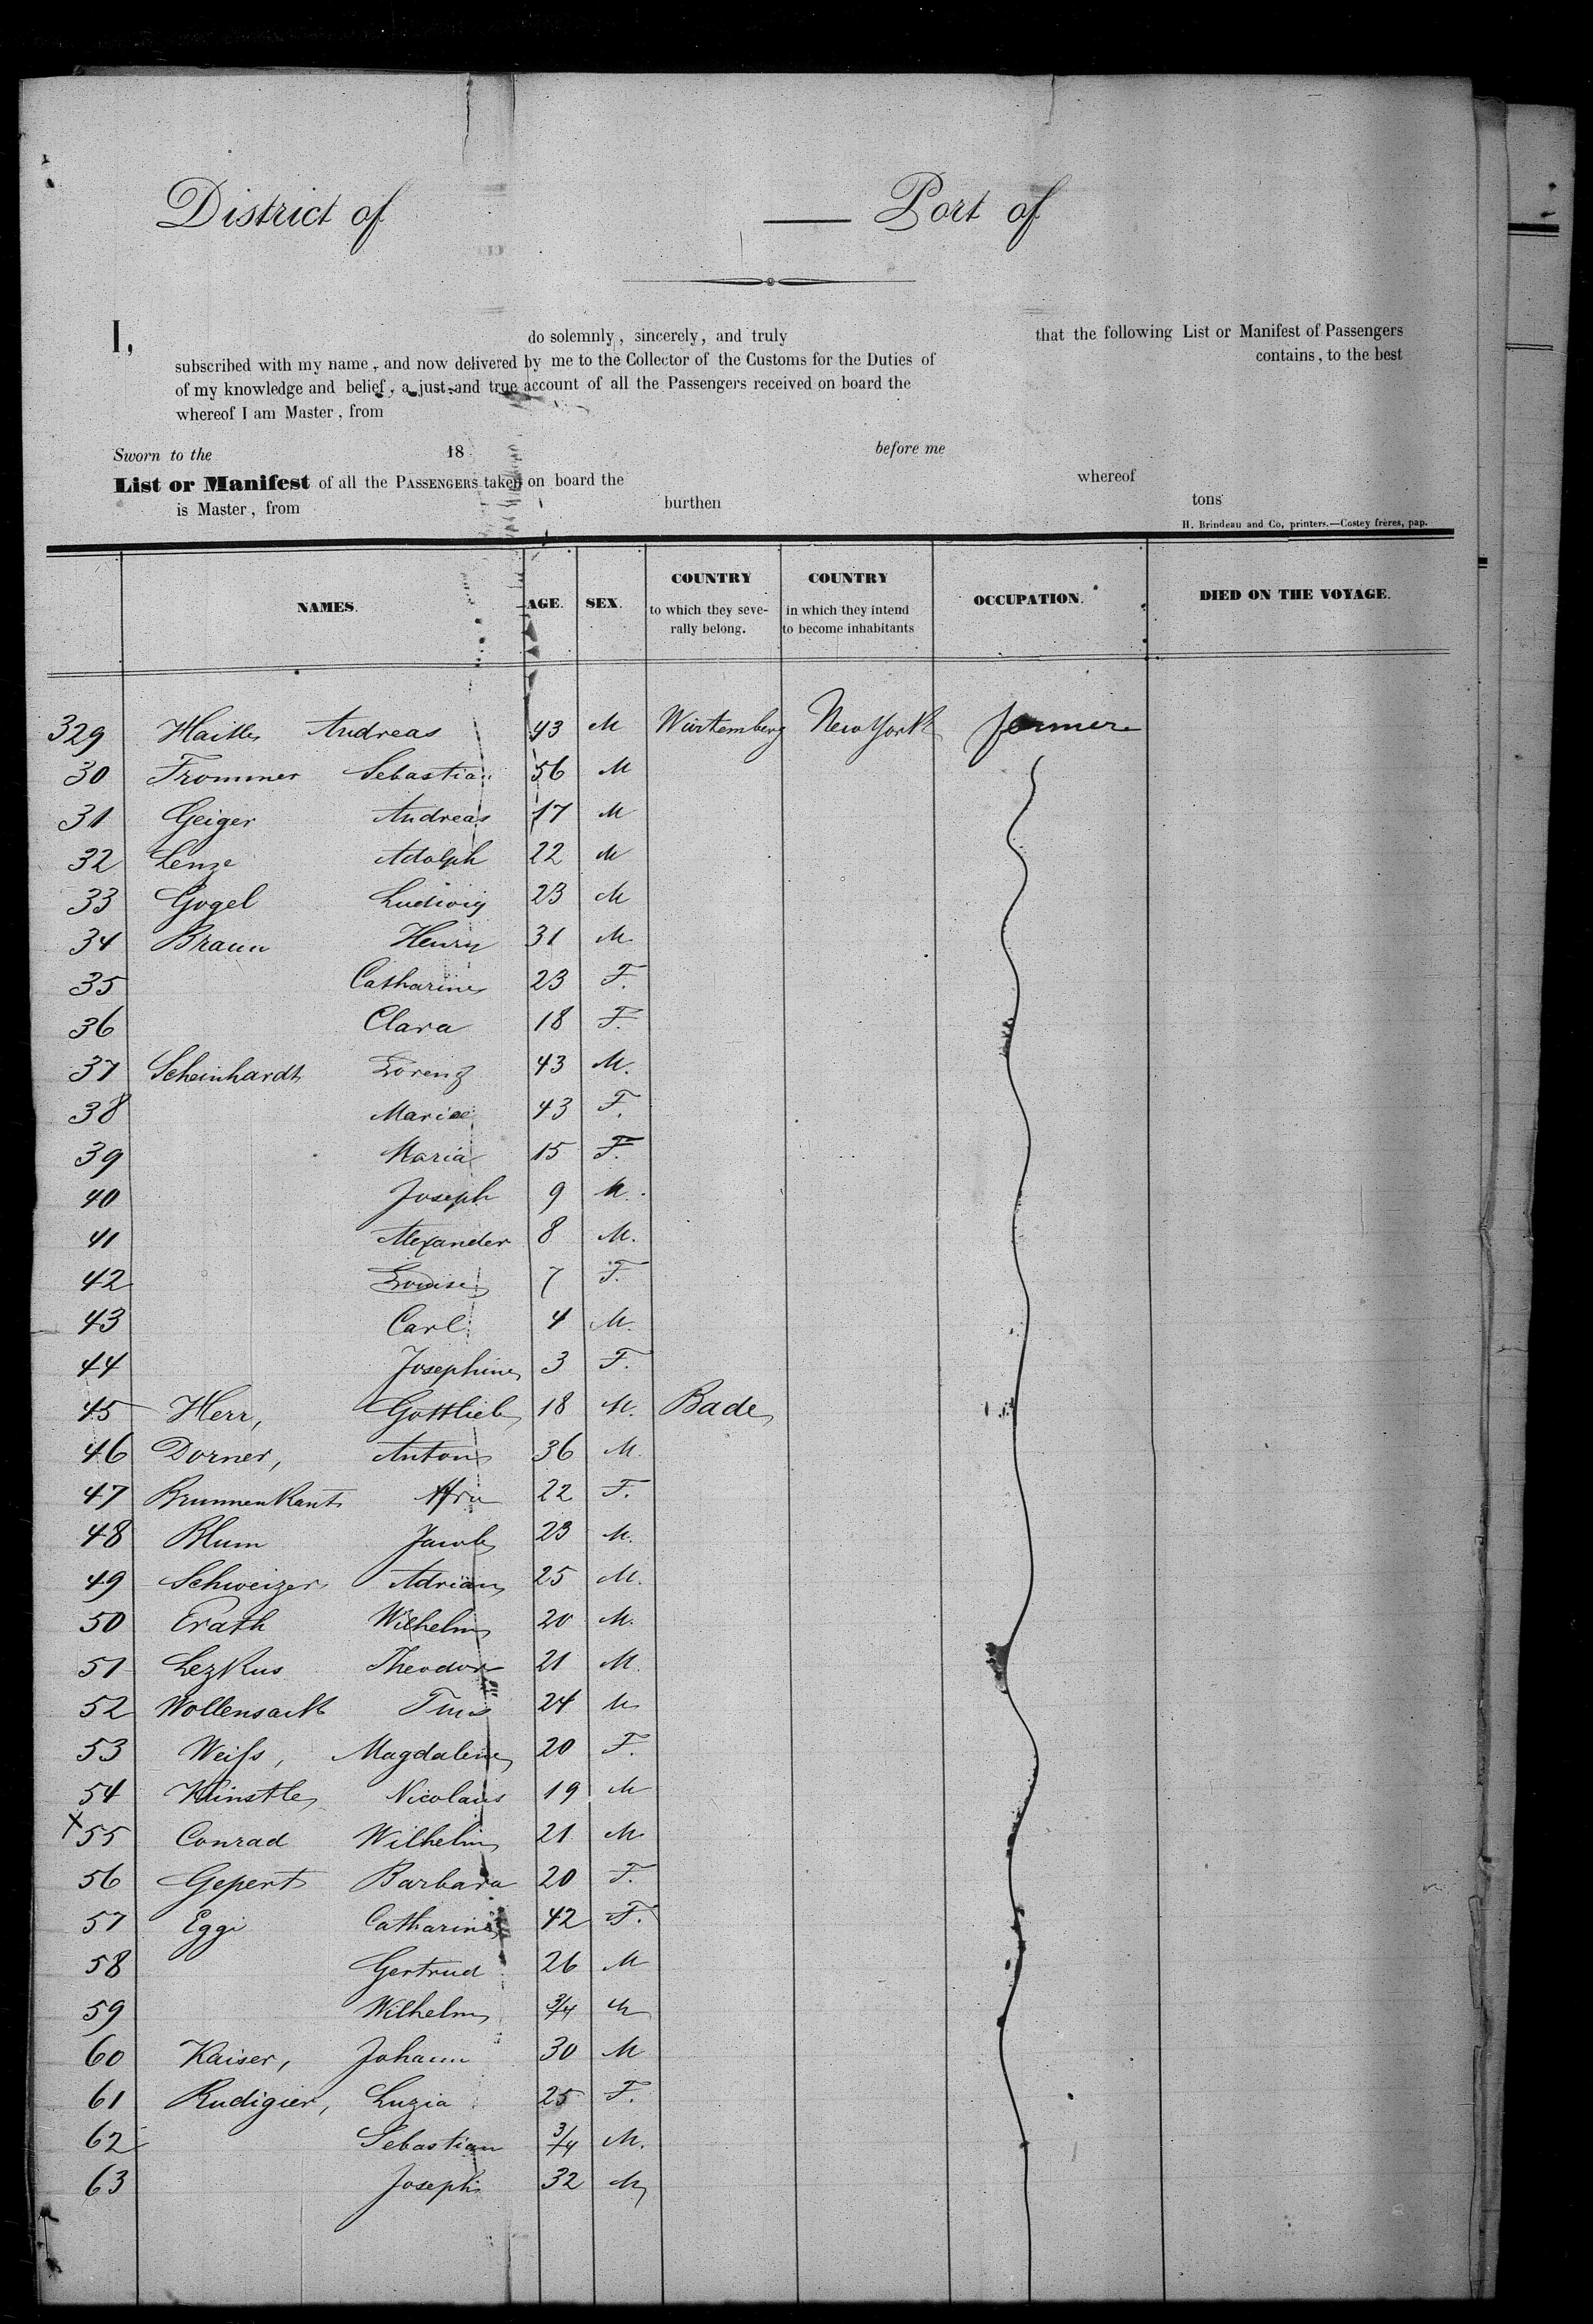 District of Port of
I, do solemnly, sincerely, and truly that the following List or Manifest of Passengers
subscribed with my name, and now delivered by me to the Collector of the Customs for the Duties of contains, to the best
of my knowledge and belief, a just and true account of all the Passengers received on board the
whereof I am Master, from
Sworn to the 18 before me
List or Manifest of all the PASSENGERS taken on board the whereof
is Master, from burthen tons
H. Brindeau and Co, printers.—Costey frères, pap.
NAMES. AGE. SEX. COUNTRY to which they severally belong. COUNTRY in which they intend to become inhabitants OCCUPATION. DIED ON THE VOYAGE.
329 Andreas 43 M Würtemberg New York farmer
30 Frommer Sebastian 56 M
31 Geiger Andreas 17 M
32 Lenze Adolph 22 M
33 Gogel Ludwig 23 M
34 Braun Henry 31 M
35 Catharine 23 F.
36 Clara 18 F.
37 Scheinhardt Lorenz 43 M.
38 Marie 43 F.
39 Maria 15 F.
40 Joseph 9 M.
41 Alexander 8 M.
42 Louise 7 F.
43 Carl 4 M.
44 Josephine 3 F.
45 Herr, Gottlieb 18 M. Bade
46 Dorner, Anton 36 M
47 Brunnenkant Afra 22 F.
48 Blum Jacob 23 M.
49 Schweizer Adrian 25 M.
50 Erath Wilhelm 20 M.
51 Lezkus Theodor 21 M.
52 Wollensack 24 M
53 Weiſs, Magdalene 20 F.
54 Künstle Nicolaus 19 M
X 55 Conrad Wilhelm 21 M
56 Gepert Barbara 20 F.
57 Eggi Catharine 42 F.
58 Gertrud 26 M
59 Wilhelm 3/4 M
60 Kaiser, Johann 30 M
61 Rudigier, Luzia 25 F.
62 Sebastian 3/4 M.
63 Joseph 32 M